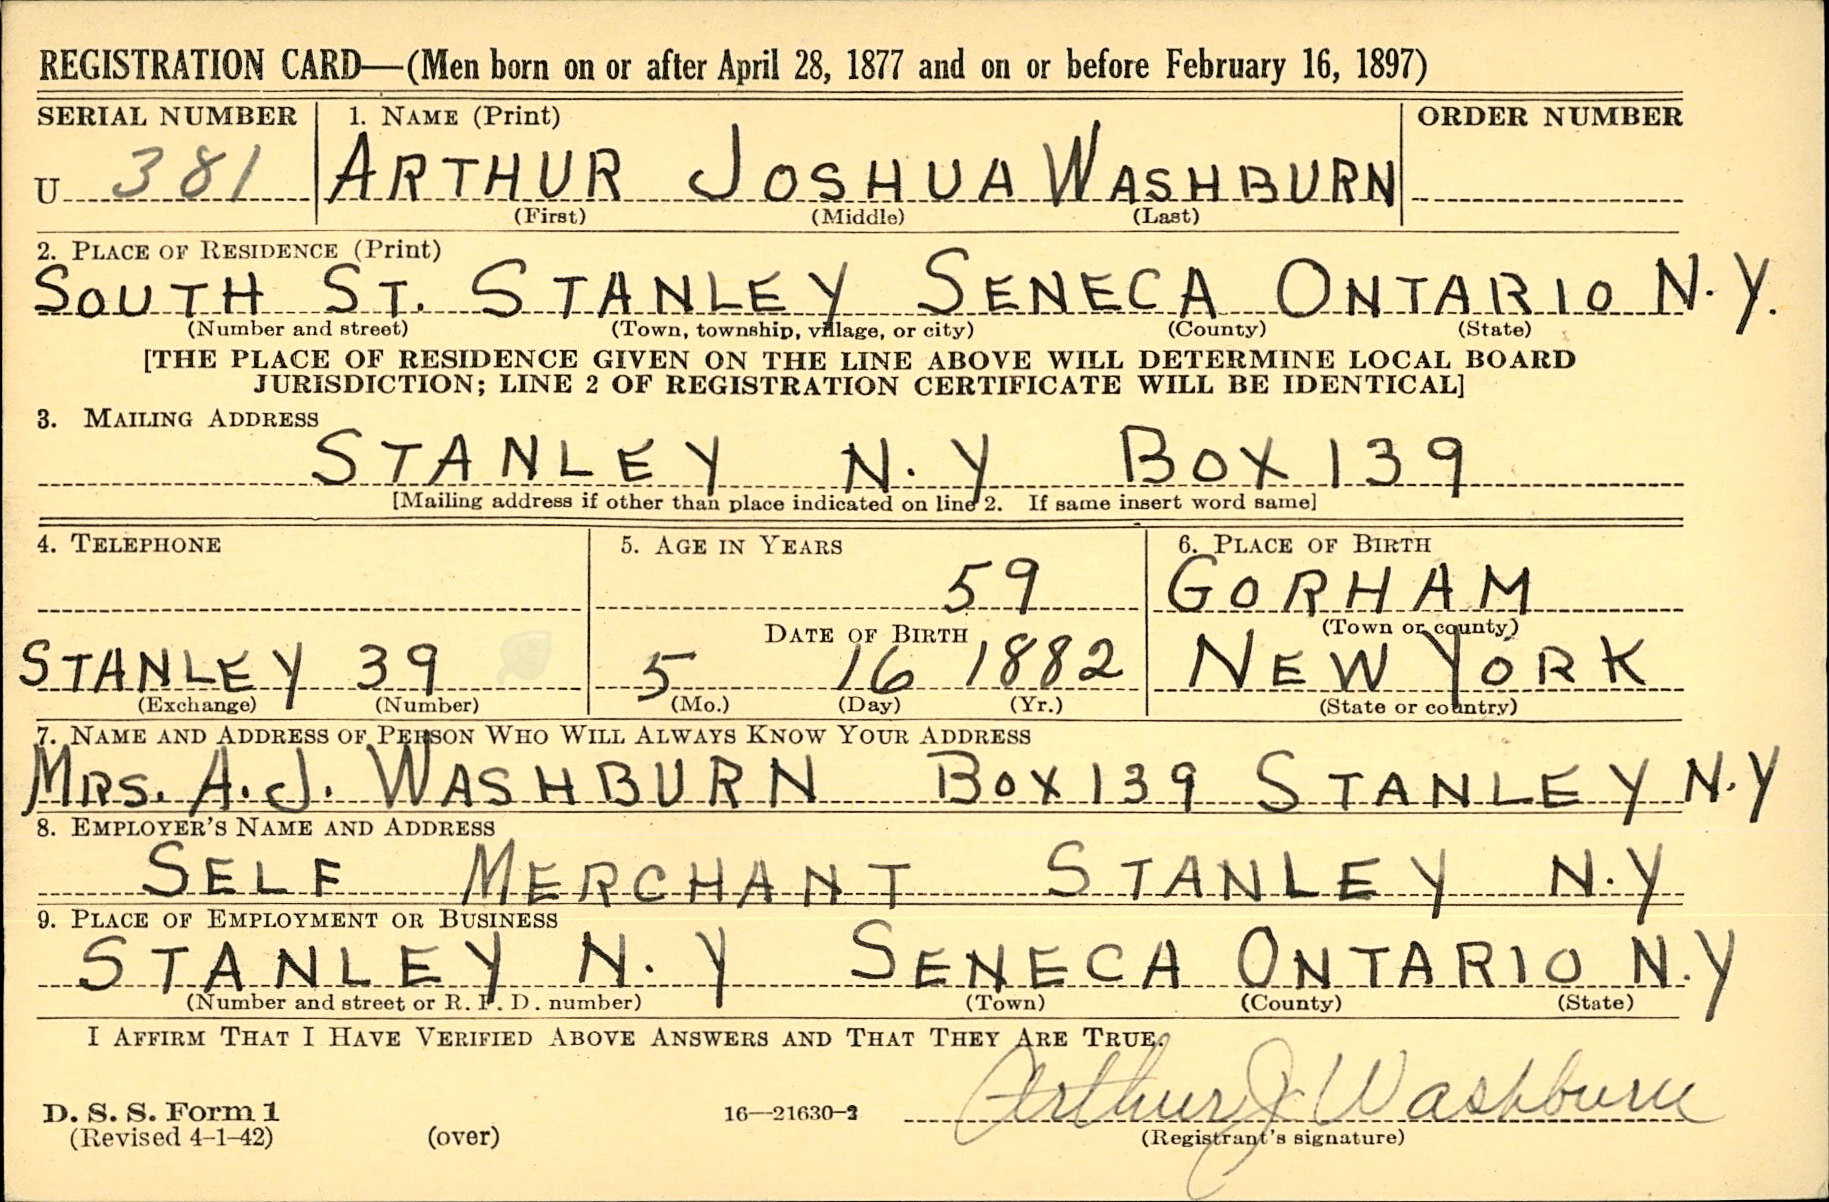 REGISTRATION CARD—(Men born on or after April 28, 1877 and on or before February 16, 1897)
SERIAL NUMBER 1. NAME (Print) ORDER NUMBER
U 381 ARTHUR JOSHUA WASHBURN
(First) (Middle) (Last)
2. PLACE OF RESIDENCE (Print)
SOUTH ST. STANLEY SENECA ONTARIO N.Y.
(Number and street) (Town, township, village, or city) (County) (State)
[THE PLACE OF RESIDENCE GIVEN ON THE LINE ABOVE WILL DETERMINE LOCAL BOARD
JURISDICTION; LINE 2 OF REGISTRATION CERTIFICATE WILL BE IDENTICAL]
3. MAILING ADDRESS
STANLEY N.Y BOX 139
[Mailing address if other than place indicated on line 2. If same insert word same]
4. TELEPHONE 5. AGE IN YEARS 6. PLACE OF BIRTH
59 GORHAM
DATE OF BIRTH (Town or county)
STANLEY 39 5 16 1882 NEW YORK
(Exchange) (Number) (Mo.) (Day) (Yr.) (State or country)
7. NAME AND ADDRESS OF PERSON WHO WILL ALWAYS KNOW YOUR ADDRESS
MRS. A.J. WASHBURN BOX 139 STANLEY N.Y
8. EMPLOYER'S NAME AND ADDRESS
SELF MERCHANT STANLEY N.Y
9. PLACE OF EMPLOYMENT OR BUSINESS
STANLEY N.Y SENECA ONTARIO N.Y
(Number and street or R. F. D. number) (Town) (County) (State)
I AFFIRM THAT I HAVE VERIFIED ABOVE ANSWERS AND THAT THEY ARE TRUE.
Arthur J Washburn
D. S. S. Form 1 16—21630-2
(Revised 4-1-42) (over) (Registrant's signature)